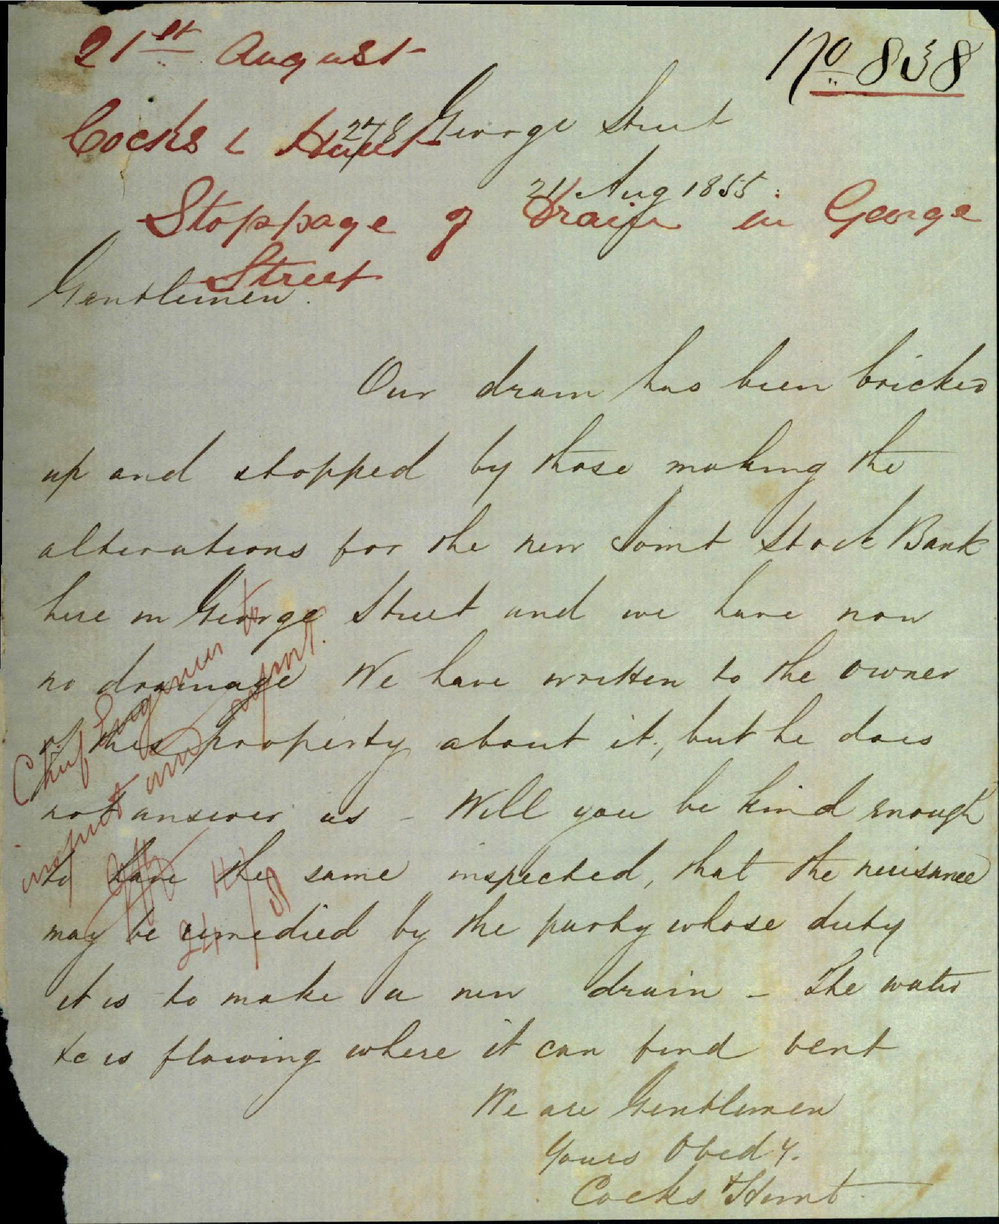 21st August
No 838
Cocks & Hunt
278 George Street
21 Aug 1855
Stoppage of Drain in George
Street
Gentlemen.
Our drain has been bricked
up and stopped by those making the
alterations for the new Joint Stock Bank
here in George Street and we have now
no drainage We have written to the owner
of this property about it, but he does
not answer us - Will you be kind enough
to have the same inspected, that the nuisance
may be remedied by the party whose duty
it is to make a new drain - The water
&c is flowing where it can find vent
We are Gentlemen
Yours Obedy.
Cocks & Hunt
Chief Engineer to
inspect and report.
24/8